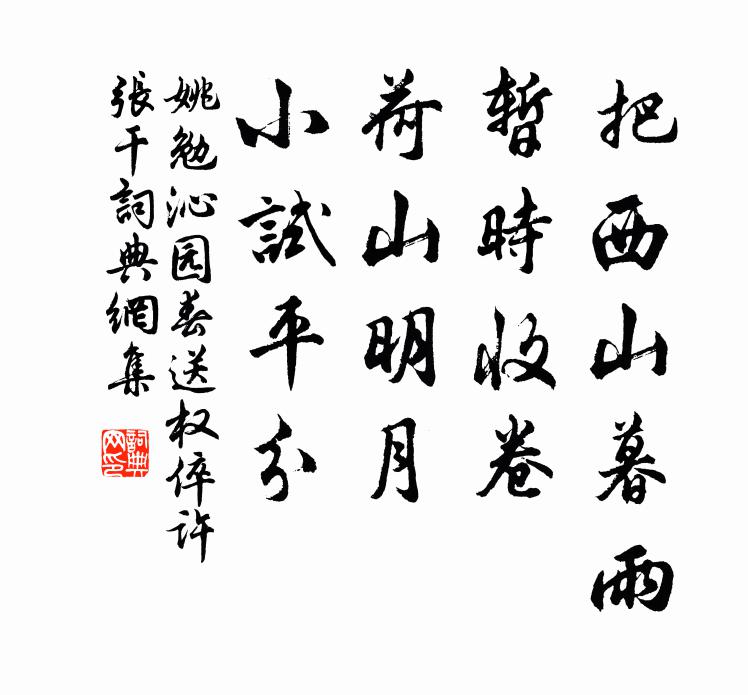 把西山暮雨
暫時收卷
荷山明月
小試平分
姚勉沁园春送权倅许
張干詞典網集
詞典
网印